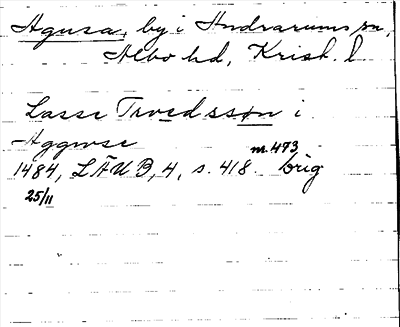 Agusa, by i Andrarums sn,
Albo hd, Krist. l.
Lasse Trvedsson i
Aggwse
nr. 473
1484, LÄUB, 4, s. 418. orig
25/11